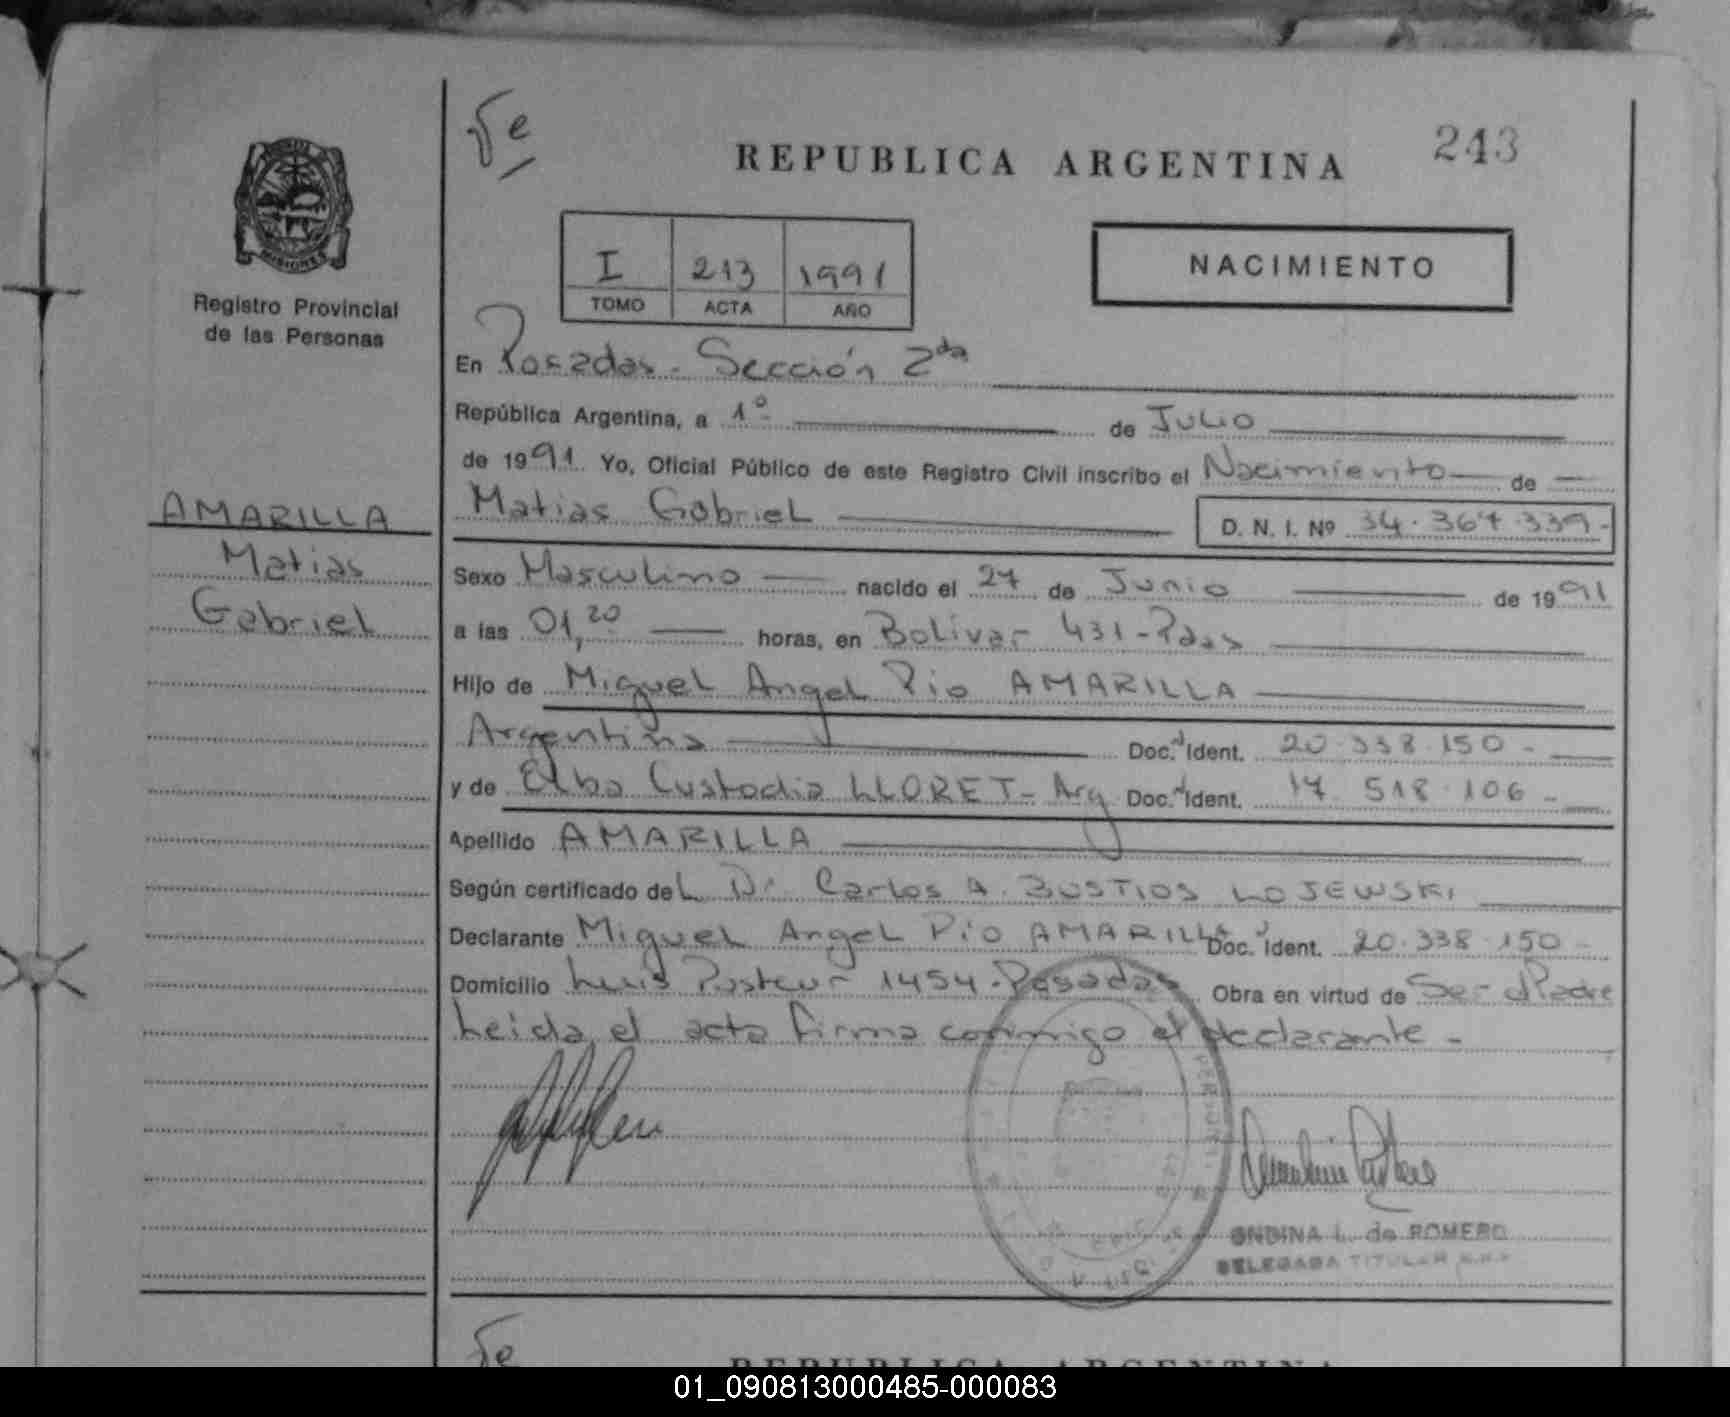 Ve
REPUBLICA ARGENTINA
243
MISIONES
Registro Provincial
de las Personas
I 213 1991
TOMO ACTA AÑO
NACIMIENTO
En Posadas - Sección 2da
República Argentina, a 1º de Julio
de 1991 Yo, Oficial Público de este Registro Civil inscribo el Nacimiento de
Matias Gabriel D. N. I. Nº 34.367.339-
AMARILLA
Matias
Gabriel
Sexo Masculino nacido el 27 de Junio de 1991
a las 01,20 horas, en Bolivar 431 - Pdas
Hijo de Miguel Angel Pio AMARILLA
Argentina Doc. Ident. 20.338.150-
y de Elba Custodia LLORET - Arg Doc. Ident. 17.518.106-
Apellido AMARILLA
Según certificado del Dr. Carlos A. BUSTIOS LOJEWSKI
Declarante Miguel Angel Pio AMARILLA Doc. Ident. 20.338.150-
Domicilio Luis Pasteur 1454 - Posadas Obra en virtud de Ser el Padre
Leida el acta firma conmigo el declarante -
ONDINA L. de ROMERO
DELEGADA TITULAR
Ve
REPUBLICA ARGENTINA
01_090813000485-000083